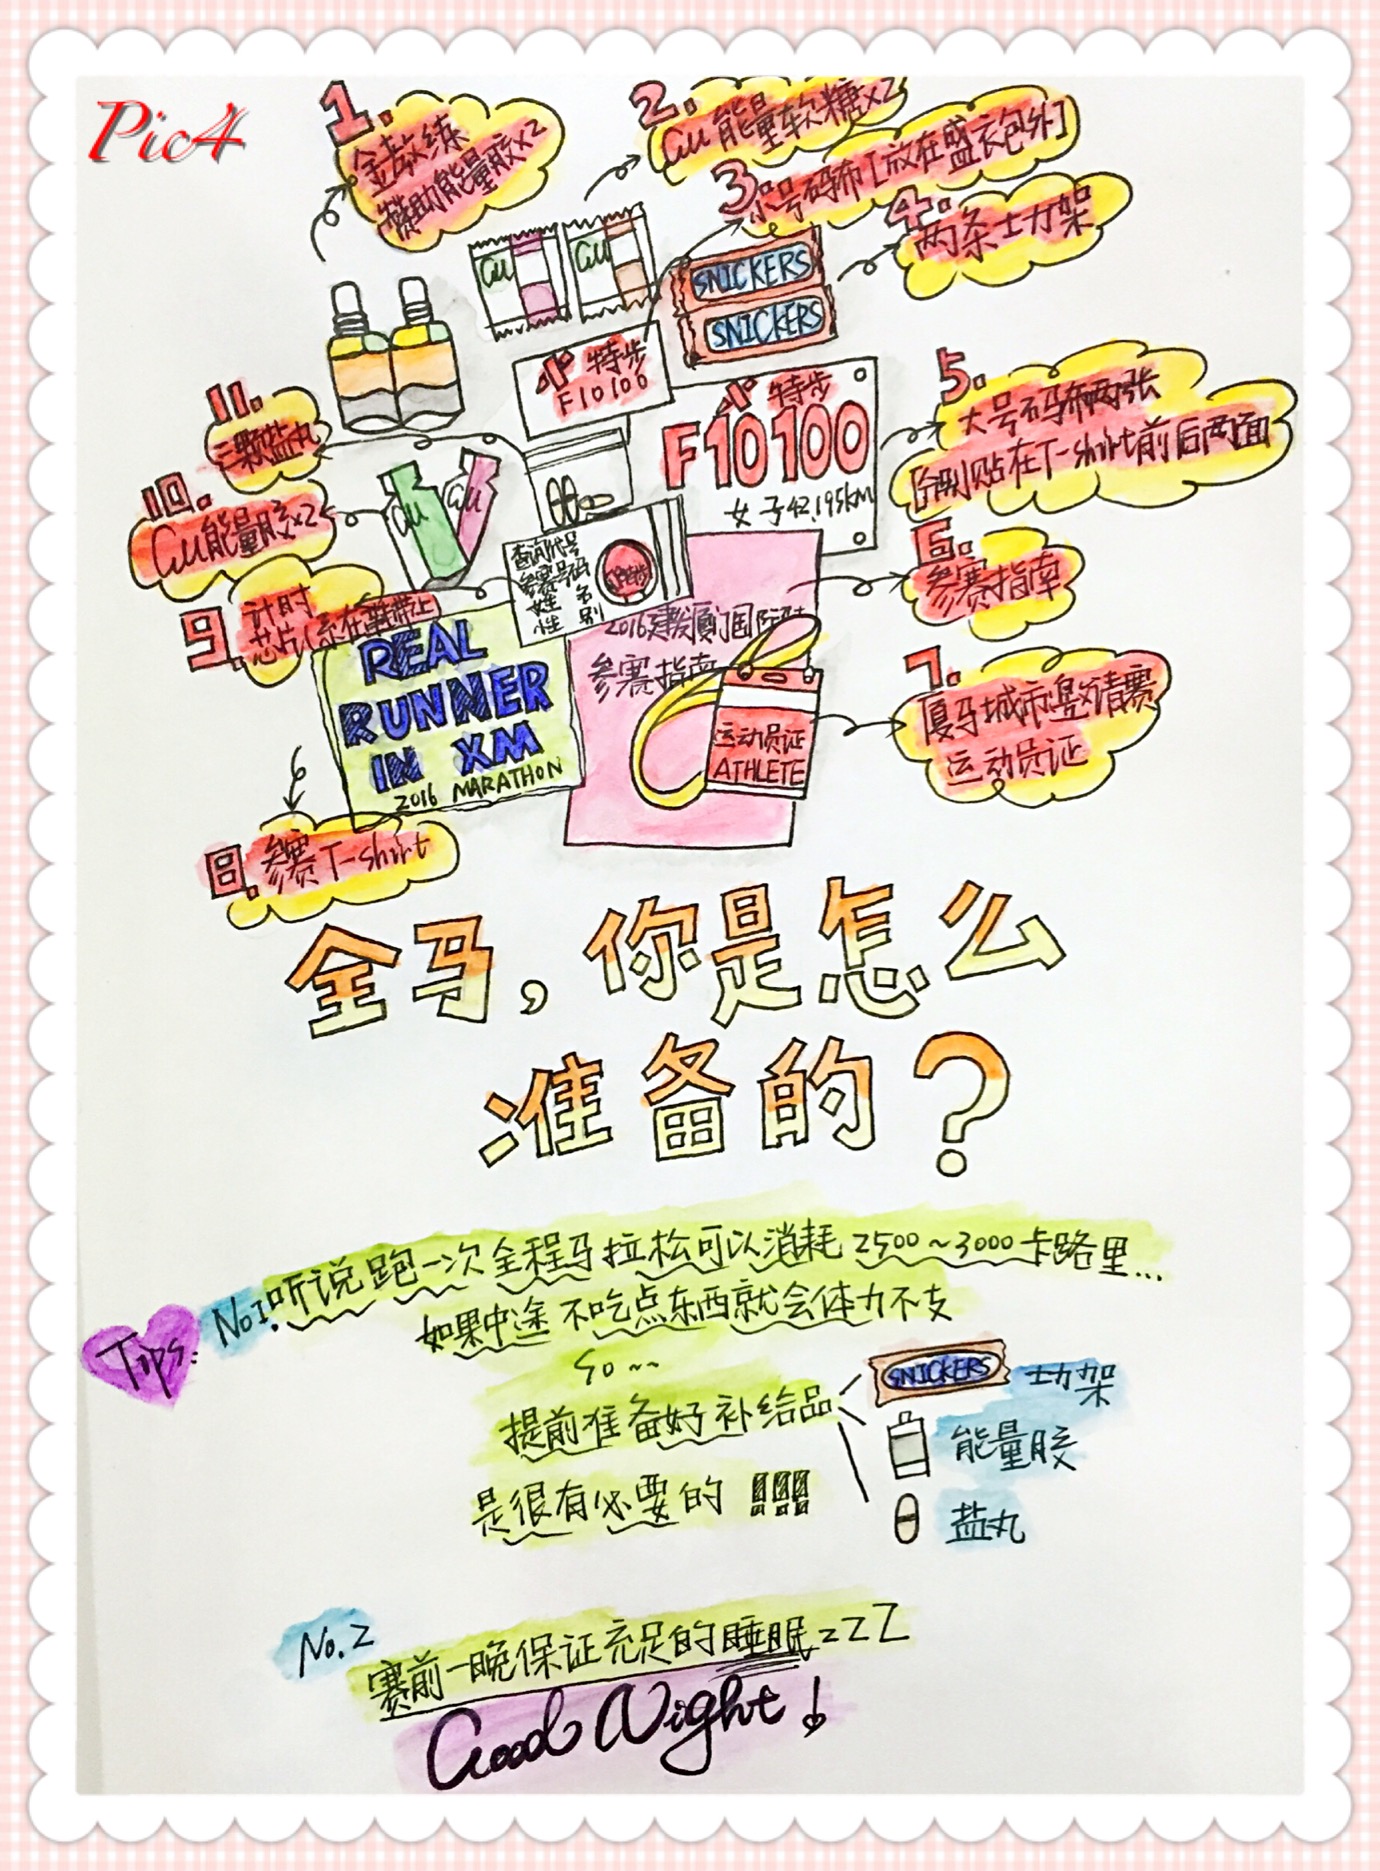 Pic4
1.
金教练
赞助能量胶x2
2.
GU能量软糖x2
3.
小号码布[放在盛衣包外]
4.
两条士力架
GU
GU
SNICKERS
SNICKERS
特步
F10100
特步
F10100
女子42.195km
5.
大号码布两张
分别贴在T-shirt前后两面
11.
三颗盐丸
10.
GU能量胶x2
GU
GU
6.
参赛指南
查询代号
参赛号码
姓 名
性 别
9.
计时
芯片(系在鞋带上
2016建发厦门国际
参赛指南
REAL
RUNNER
IN XM
2016 MARATHON
运动员证
ATHLETE
7.
厦马城市邀请赛
运动员证
8.
参赛T-shirt
全马,你是怎么
准备的?
Tips:
No.1.听说跑一次全程马拉松可以消耗2500~3000卡路里...
如果中途不吃点东西就会体力不支
so~~
提前准备好补给品
是很有必要的 !!!
SNICKERS
士力架
能量胶
盐丸
No.2
赛前一晚保证充足的睡眠zZZ
Good Night!